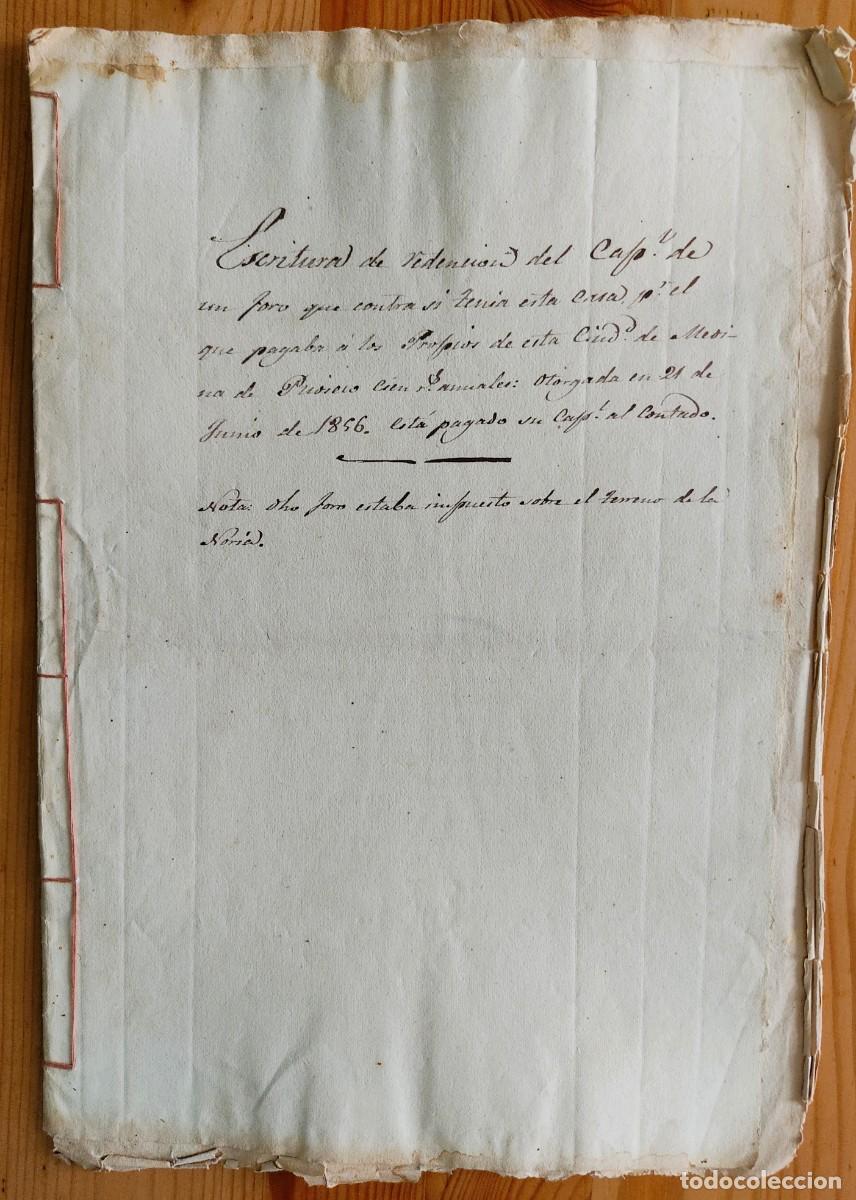 Escritura de redencion del Cap.l de
un foro que contra si tenia esta Casa, p.r el
que pagaba á los Propios de esta Ciud.d de Medi-
na de Rioseco Cien r.s anuales: Otorgada en 21 de
Junio de 1856. Está pagado su Cap.l al Contado.
Nota: Dho foro estaba impuesto sobre el terreno de la
Noria.
todocoleccion